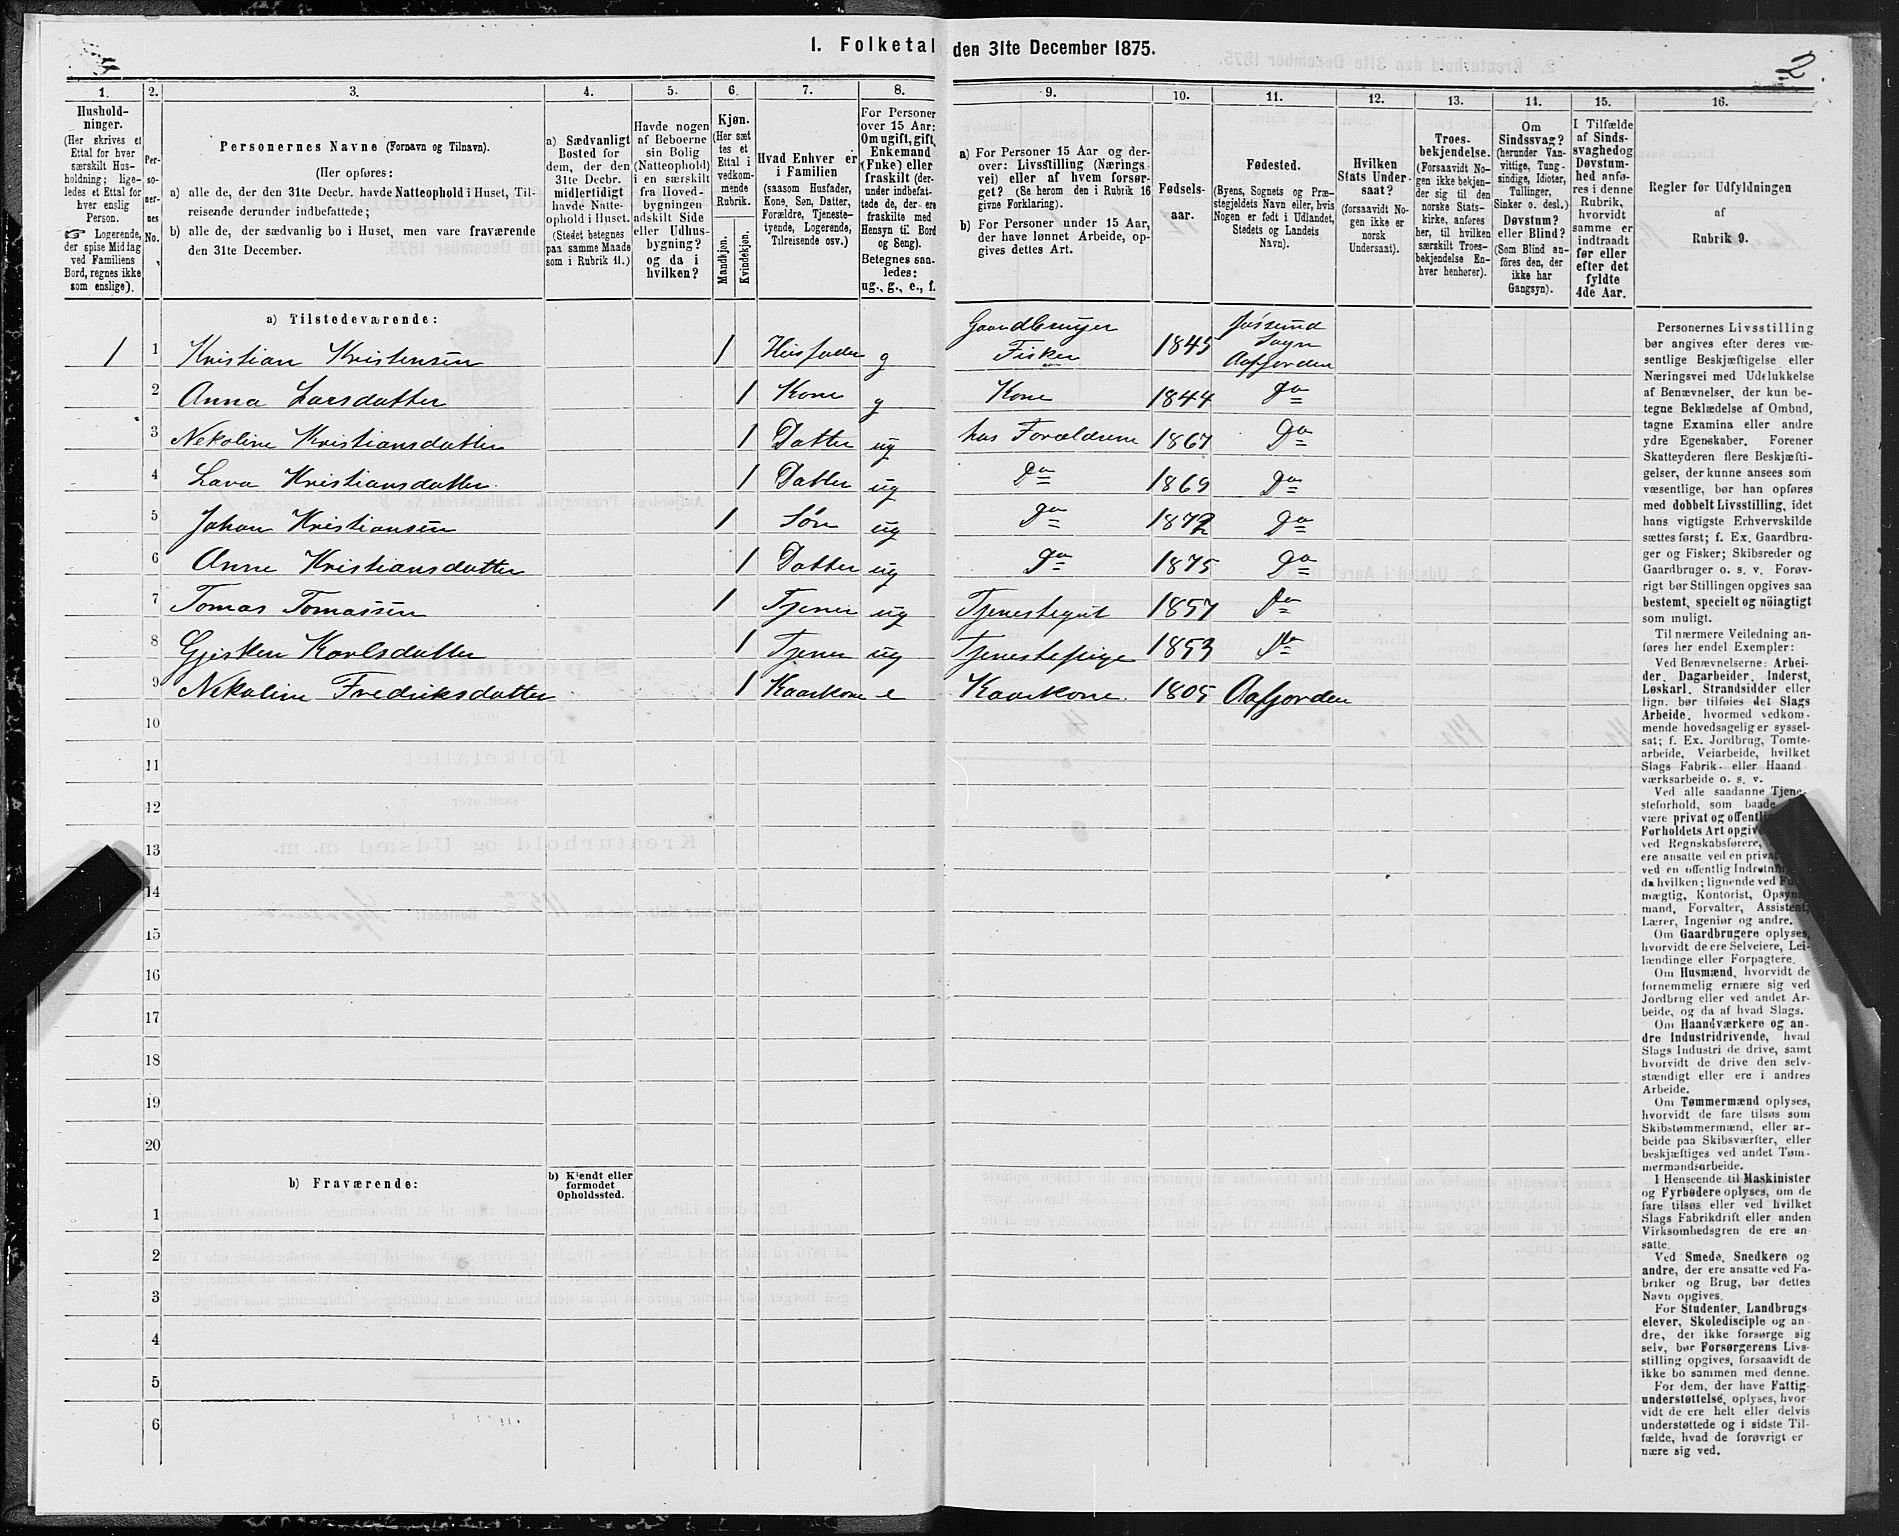 I. Folketal den 31te December 1875.
2.
1. 2. 3. 4. 5. 6. 7. 8. 9. 10. 11. 12. 13. 14. 15. 16.
Hushold-
ninger.
(Her skrives et
Ettal for hver
særskilt Hus-
holdning; lige-
ledes et Ettal for
hver enslig
Person.
☞ Logerende,
der spise Middag
ved Familiens
Bord, regnes ikke
som enslige).
Per-
so-
ner-
nes
No.
Personernes Navne (Fornavn og Tilnavn).
(Her opføres:
a) alle de, der den 31te Decbr. havde Natteophold i Huset, Til-
reisende derunder indbefattede;
b) alle de, der sædvanlig bo i Huset, men vare fraværende
den 31te December.
a) Sædvanligt
Bosted for
dem, der den
31te Decbr.
midlertidigt
havde Natte-
ophold i Huset.
(Stedet betegnes
paa samme Maade
som i Rubrik 11.)
Havde nogen
af Beboerne
sin Bolig
(Natteophold)
i en særskilt
fra Hoved-
bygningen
adskilt Side
eller Udhus-
bygning?
og da i
hvilken?
Kjøn.
(Her sæt
tes et
Ettal i
vedkom-
mende
Rubrik.
Mandkjøn.
Kvindekjøn.
Hvad Enhver er
i Familien
(saasom Husfader,
Kone, Søn, Datter,
Forældre, Tjeneste-
tyende, Logerende,
Tilreisende osv.)
For Personer
over 15 Aar:
Om ugift, gift,
Enkemand
(Enke) eller
fraskilt (der-
under indbefat-
tede de, der ere
fraskilte med
Hensyn til Bord
og Seng).
Betegnes saa-
ledes:
ug., g., e., f.
a) For Personer 15 Aar og der-
over: Livsstilling (Nærings-
vei) eller af hvem forsør-
get? (Se herom den i Rubrik 16
givne Forklaring).
b) For Personer under 15 Aar,
der have lønnet Arbeide, op-
gives dettes Art.
Fødsels-
aar.
Fødested.
(Byens, Sognets og Præ-
stegjeldets Navn eller, hvis
Nogen er født i Udlandet,
Stedets og Landets
Navn).
Hvilken
Stats Under-
saat?
(forsaavidt No-
gen ikke er
norsk
Undersaat).
Troes-
bekjendelse.
(Forsaavidt No-
gen ikke bekjen-
der sig til den
norske Stats-
kirke, anføres
her, til hvilken
særskilt Troes-
bekjendelse En-
hver henhører).
Om
Sindssvag?
(herunder Van-
vittige, Tung-
sindige, Idioter,
Tullinger,
Sinker o. desl.)
Døvstum?
eller Blind?
(Som Blind an-
føres den, der
ikke har
Gangsyn).
I Tilfælde
af Sinds-
svaghed og
Døvstum-
hed anfø-
res i denne
Rubrik,
hvorvidt
samme er
indtraadt
før eller
efter det
fyldte
4de Aar.
Regler for Udfyldningen
af
Rubrik 9.
a) Tilstedeværende:
1 1 Kristian Kristensen 1 Husfader g Gaardbruger Fisker 1845 Jøssund Sogn Aafjorden
2 Anna Larsdatter 1 Kone g Kone 1844 Do
3 Nekoline Kristiansdatter 1 Datter ug hos Forældrene 1867 Do
4 Lava Kristiansdatter 1 Datter ug Do 1869 Do
5 Johan Kristiansen 1 Søn ug Do 1872 Do
6 Anne Kristiansdatter 1 Datter ug Do 1875 Do
7 Tomas Tomassen 1 Tjener ug Tjenestegut 1857 Do
8 Gjertken Karlsdatter 1 Tjener ug Tjenestepige 1853 Do
9 Nekoline Fredriksdatter 1 Kaarkone e Kaarkone 1805 Aafjorden
10
11
12
13
14
15
16
17
18
19
20
b) Fraværende:
b) Kjendt eller
formodet
Opholdssted.
1
2
3
4
5
6
Personernes Livsstilling
bør angives efter deres væ-
sentlige Beskjæftigelse eller
Næringsvei med Udelukkelse
af Benævnelser, der kun be-
tegne Beklædelse af Ombud,
tagne Examina eller andre
ydre Egenskaber. Forener
Skatteyderen flere Beskjæfti-
gelser, der kunne ansees som
væsentlige, bør han opføres
med dobbelt Livsstilling, idet
hans vigtigste Erhvervskilde
sættes først; f. Ex. Gaardbru-
ger og Fisker; Skibsreder og
Gaardbruger o. s. v. Forøv-
rigt bør Stillingen opgives saa
bestemt, specielt og nöiagtigt
som muligt.
Til nærmere Veiledning an-
føres her endel Exempler:
Ved Benævnelserne: Arbei-
der, Dagarbeider, Inderst,
Løskarl, Strandsidder eller
lign. bør tilføies det Slags
Arbeide, hvormed vedkom-
mende hovedsagelig er syssel-
sat; f. Ex. Jordbrug, Tomte-
arbeide, Veiarbeide, hvilket
Slags Fabrik- eller Haand
værksarbeide o. s. v.
Ved alle saadanne Tjene-
steforhold, som baade
være privat og offentlig
Forholdets Art opgiv
ved Regnskabsførere,
ere ansatte ved en privat
ved en offentlig Indretning
da hvilken; lignende ved Fuld
mægtig, Kontorist, Opsyns
mand, Forvalter, Assistent,
Lærer, Ingeniør og andre.
Om Gaardbrugere oplyses,
hvorvidt de ere Selveiere, Lei-
lændinge eller Forpagtere.
Om Husmænd, hvorvidt de
fornemmelig ernære sig ved
Jordbrug eller ved andet Ar-
beide, og da af hvad Slags.
Om Haandværkere og an-
dre Industridrivende, hvad
Slags Industri de drive, samt
hvorvidt de drive den selv-
stændigt eller ere i andres
Arbeide.
Om Tømmermænd oplyses,
hvorvidt de fare tilsøs som
Skibstømmermænd, eller ar-
beide paa Skibsværfter, eller
beskjæftiges ved andet Tøm-
mermandsarbeide.
I Henseende til Maskinister
og Fyrbødere oplyses, om de
fare tilsøs eller ved hvilket
Slags Fabrikdrift eller anden
Virksomhedsgren de ere an-
satte.
Ved Smede, Snedkere og
andre, der ere ansatte ved Fa-
briker og Brug, bør dettes
Navn opgives.
For Studenter, Landbrugs
elever, Skoledisciple og an
dre, der ikke forsørge sig
selv, bør Forsørgerens Livs-
stilling opgives, forsaavidt de
ikke bo sammen med denne.
For dem, der have Fattig-
understøttelse, oplyses, hvor-
vidt de ere helt eller delvis
understøttede og i sidste Til-
fælde, hvad de forøvrigt er
nære sig ved.